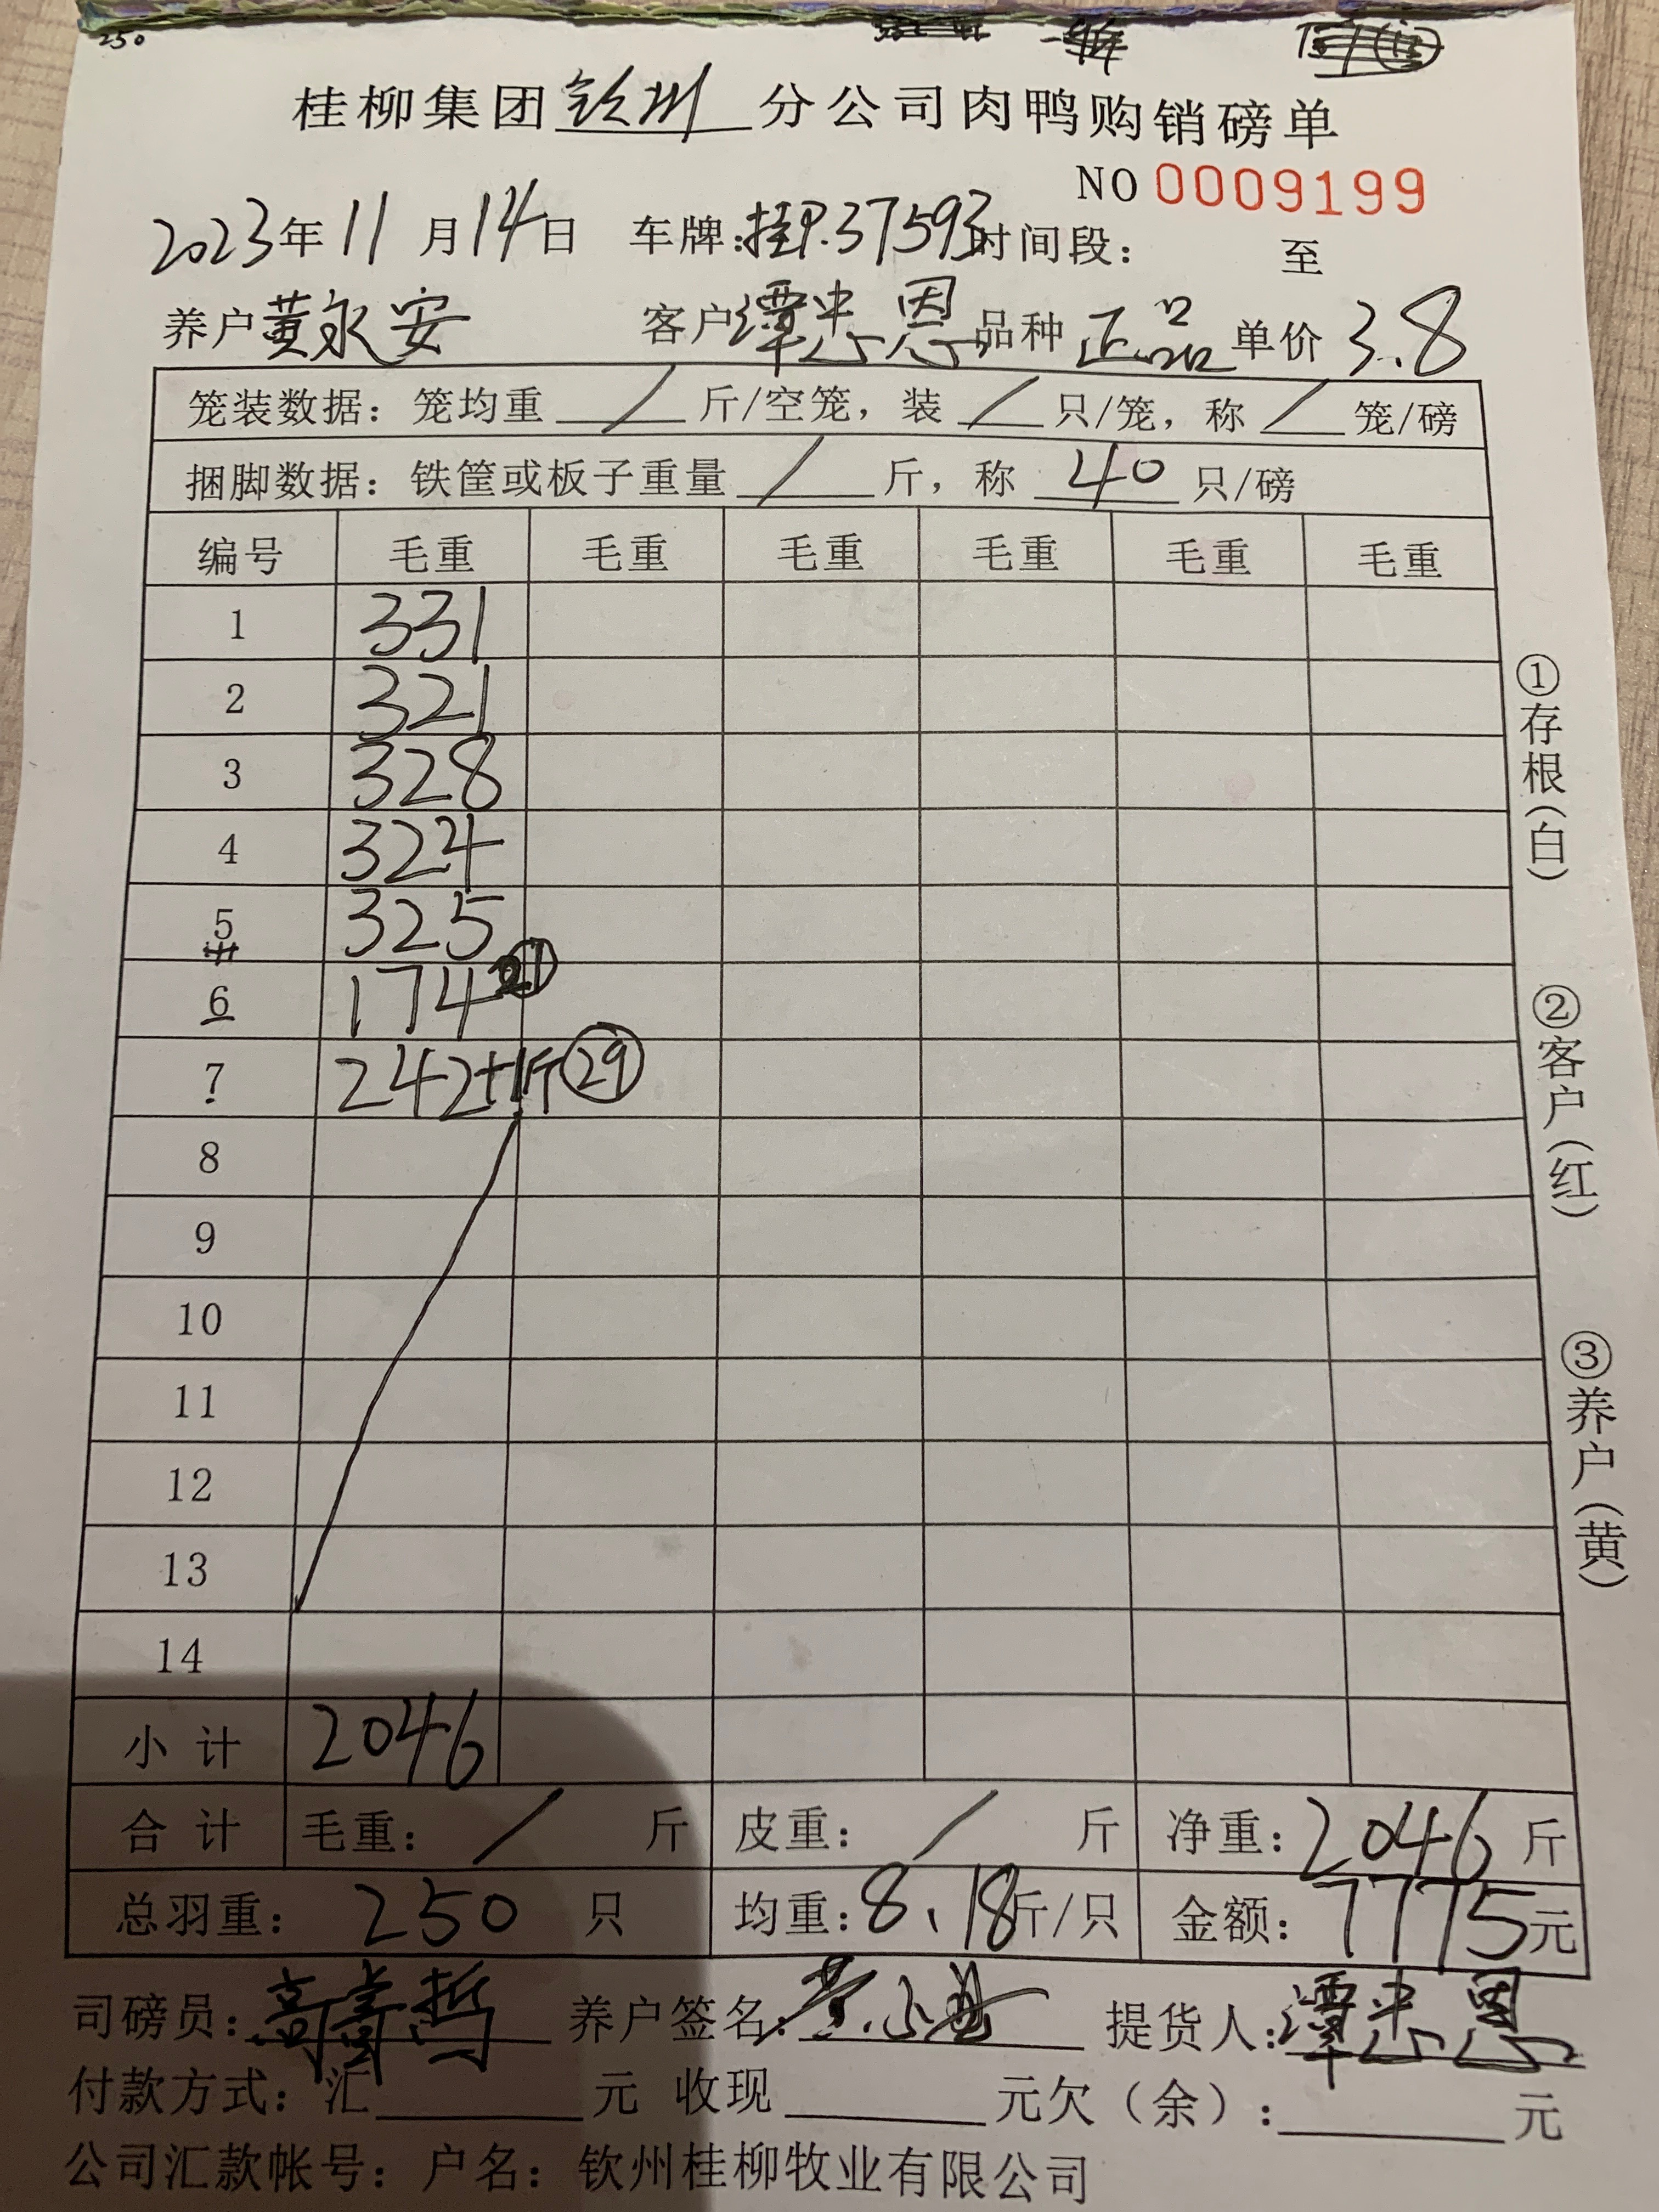 250
桂柳集团钦州分公司肉鸭购销磅单
NO 0009199
2023年11月14日 车牌:桂P.37593时间段: 至
养户黄永安 客户谭忠恩品种正品单价3.8
笼装数据:笼均重/斤/空笼,装/只/笼,称/笼/磅
捆脚数据:铁筐或板子重量/斤,称40只/磅
编号 毛重 毛重 毛重 毛重 毛重 毛重
1 331
2 321
3 328
4 324
5 325
6 174 21
7 242+1斤 29
8
9
10
11
12
13
14
小计 2046
合计 毛重: / 斤 皮重: / 斤 净重:2046斤
总羽重: 250 只 均重:8.18斤/只 金额:7775元
司磅员: 养户签名: 提货人:谭忠恩
付款方式:汇 元 收现 元欠(余): 元
公司汇款帐号:户名:钦州桂柳牧业有限公司
①存根(白)
②客户(红)
③养户(黄)